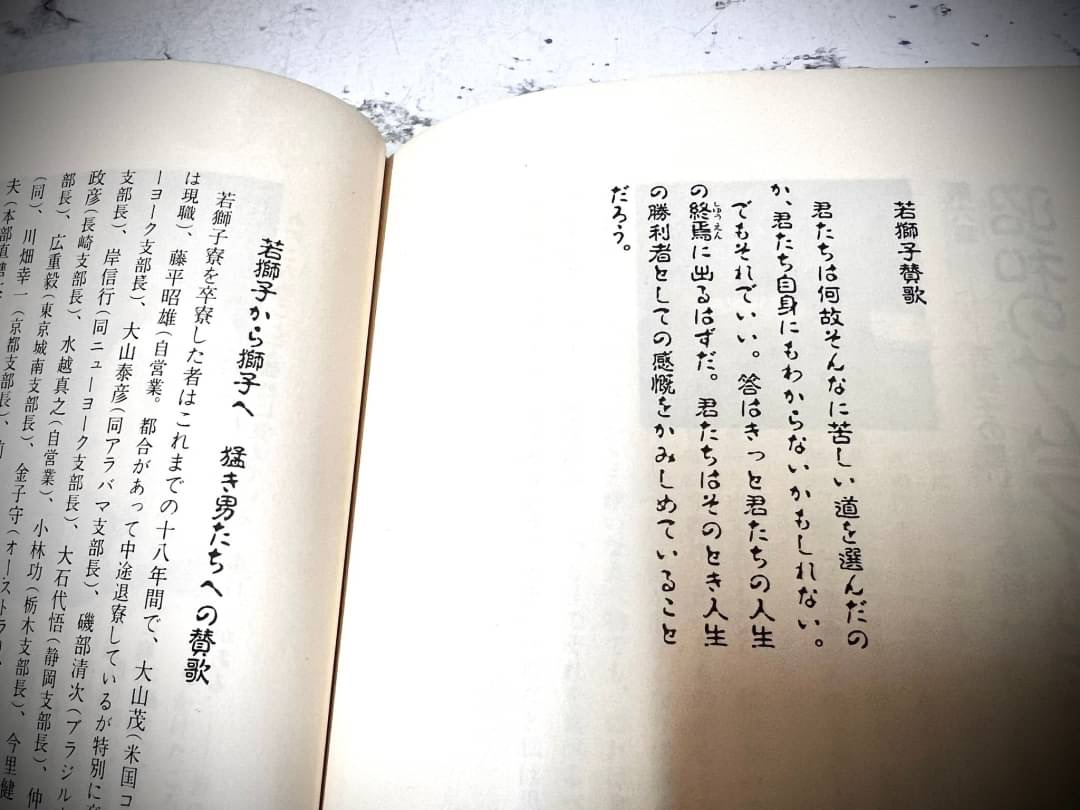 若獅子賛歌
君たちは何故そんなに苦しい道を選んだの
か、君たち自身にもわからないかもしれない。
でもそれでいい。答はきっと君たちの人生
の終焉に出るはずだ。君たちはそのとき人生
しゅうえん
の勝利者としての感慨をかみしめていること
だろう。
若獅子から獅子へ　猛き男たちへの賛歌
若獅子寮を卒寮した者はこれまでの十八年間で、大山茂(米国コ
は現職)、藤平昭雄(自営業。都合があって中途退寮しているが特別に
ーヨーク支部長)、大山泰彦(同アラバマ支部長)、磯部清次(ブラジル
支部長)、岸信行(同ニューヨーク支部長)、大石代悟(静岡支部長)、仲
政彦(長崎支部長)、水越真之(自営業)、小林功(栃木支部長)、今里健
部長)、広重毅(東京城南支部長)、金子守(オーストラリ
(同)、川畑幸一(京都支部長)、
夫(本部直轄